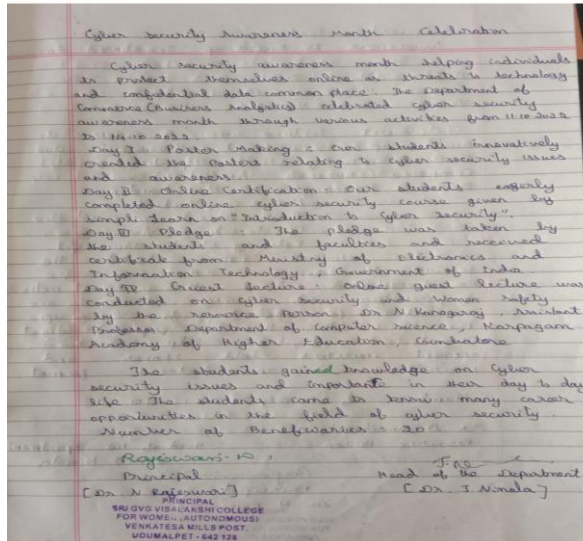 Cyber security Awareness Month Celebration
Cyber security awareness month helping individuals
to protect themselves online as threats to technology
and confidential data common place. The Department of
Commerce (Business Analytics) celebrated cyber security
awareness month through various activities from 11.10.2022
to 14.10.2022.
Day I Poster Making : Our students innovatively
created the Posters relating to cyber security issues
and awareness.
Day II Online Certification : Our students eagerly
completed online cyber security course given by
Simpli Learn on "Introduction to Cyber Security".
Day III Pledge : The pledge was taken by
the students and faculties and received
certificate from Ministry of Electronics and
Information Technology, Government of India
Day IV Guest Lecture : Online guest lecture was
conducted on cyber security and Women Safety
by the resource person Dr N Kanagaraj, Assistant
Professor, Department of Computer Science, Karpagam
Academy of Higher Education, Coimbatore
The students gained knowledge on Cyber
security issues and importante in their day to day
life. The students came to know many career
opportunities in the field of cyber security.
Number of Beneficiaries : 20
Rajeswari. N.
Principal Head of the Department
[Dr N Rajeswari] [Dr. J. Nirmala]
PRINCIPAL
SRI GVG VISALAKSHI COLLEGE
FOR WOMEN, (AUTONOMOUS)
VENKATESA MILLS POST,
UDUMALPET - 642 128